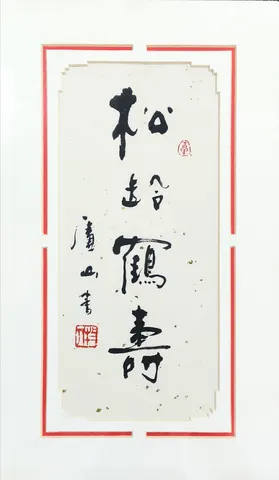 松齡鶴壽
廬山書